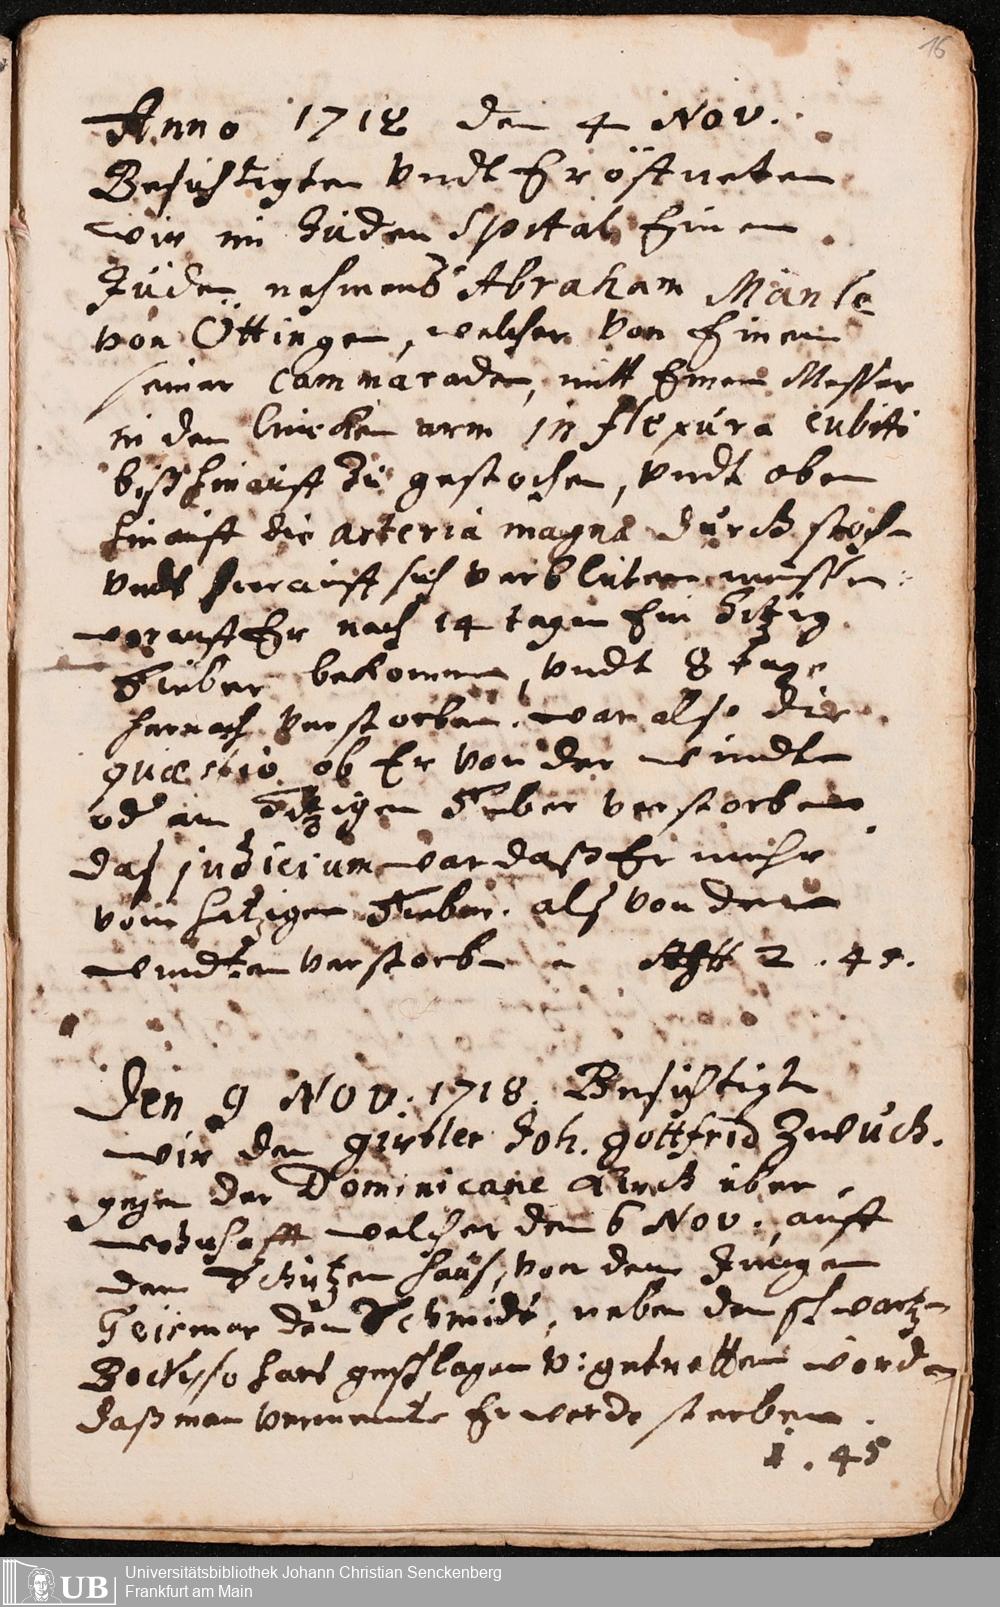 16
Anno 1718 den 4 Nov.
Besichtigten vndt Eröffneten
wir im Juden Spital Einen
Juden nahmens Abraham Manle
von Öttingen, welcher von Einem
seiner Cammaraden, mitt Einem Messer
in den lincken arm in flexura cubiti
biß hinauff zu gestochen, vndt oben
hinauff die arteria magna durch stochen
vndt hierauff sich verbluten müssen:
worauff Er nach 14 tagen Ein hitzig
Fieber bekommen, vndt 8 tage
hernach verstorben. war also die
quæstio ob Er von der wundten
od am hitzigen Fieber verstorben
das judicium war daß Er mehr
vom hitzigen Fieber als von der
wundten verstorben 2 . 45.
Den 9 Nov. 1718. Besichtigt
wir den gürtler Joh. gottfrid Zwuck.
gegen der Dominicane Kirch über
wohnhafft welcher den 6 Nov. auff
dem Schützen hauß, von dem Jungen
Geismar dem Schmidt, neben dem schwartzen
Bock, so hart geschlagen v: getretten worden
daß man vermeinte Er werde sterben.
1 . 45
UB Universitätsbibliothek Johann Christian Senckenberg
Frankfurt am Main